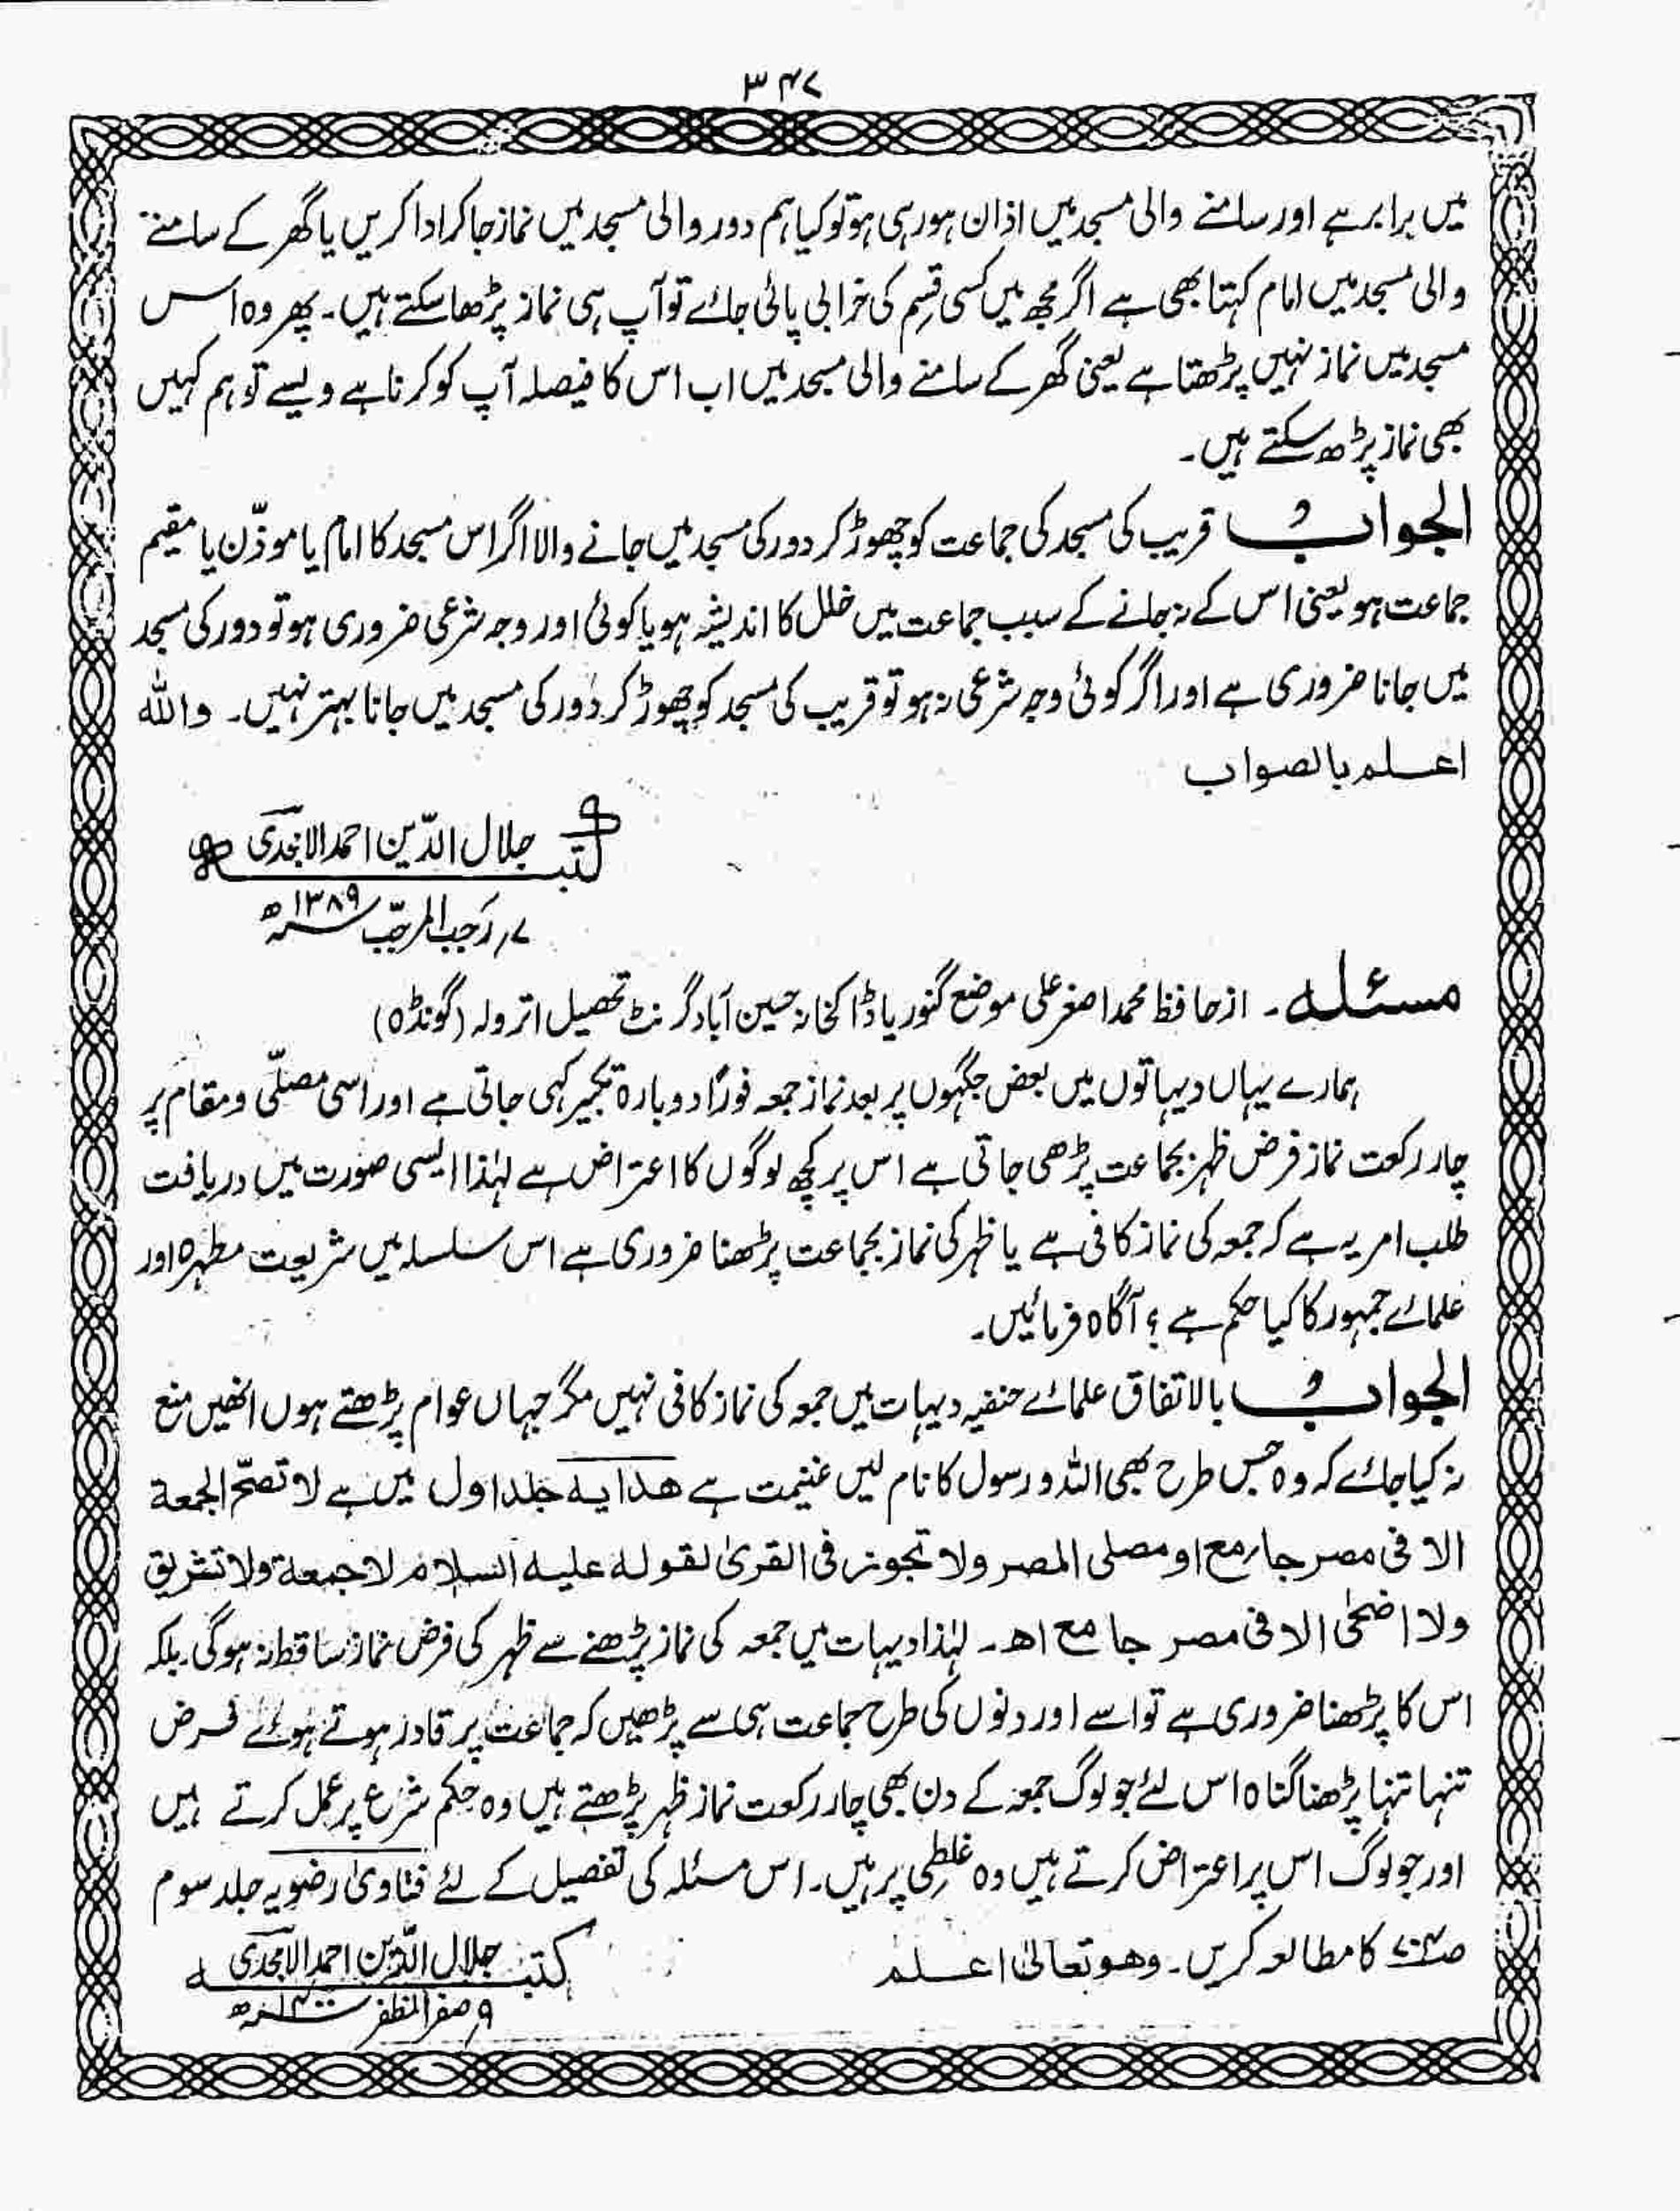 ۳۴۷
میں برابر ہے اور سامنے والی مسجد میں اذان ہو رہی ہو تو کیا ہم دور والی مسجد میں نماز جا کر ادا کریں یا گھر کے سامنے
والی مسجد میں امام کہتا بھی ہے اگر مجھ میں کسی قسم کی خرابی پائی جائے تو آپ ہی نماز پڑھا سکتے ہیں۔ پھر وہ اس
مسجد میں نماز نہیں پڑھتا ہے یعنی گھر کے سامنے والی مسجد میں اب اس کا فیصلہ آپ کو کرنا ہے ویسے تو ہم کہیں
بھی نماز پڑھ سکتے ہیں۔
الجواب قریب کی مسجد کی جماعت کو چھوڑ کر دور کی مسجد میں جانے والا اگر اس مسجد کا امام یا موذّن یا مقیم
جماعت ہو یعنی اس کے نہ جانے کے سبب جماعت میں خلل کا اندیشہ ہو یا کوئی اور وجہ شرعی ضروری ہو تو دور کی مسجد
میں جانا ضروری ہے اور اگر کوئی وجہ شرعی نہ ہو تو قریب کی مسجد کو چھوڑ کر دُور کی مسجد میں جانا بہتر نہیں۔ واللہ
اعلم بالصواب
کتبہ جلال الدّین احمد الامجدی
۷؍ رجب المرجّب ۱۳۸۹ھ
مسئلہ۔ از حافظ محمد اصغر علی موضع گنوریا ڈاکخانہ حسین آباد گرنٹ تحصیل اترولہ (گونڈہ)
ہمارے یہاں دیہاتوں میں بعض جگہوں پر بعد نماز جمعہ فوراً دوبارہ تکبیر کہی جاتی ہے اور اسی مصلّی و مقام پر
چار رکعت نماز فرض ظہر بجماعت پڑھی جاتی ہے اس پر کچھ لوگوں کا اعتراض ہے لہٰذا ایسی صورت میں دریافت
طلب امر یہ ہے کہ جمعہ کی نماز کافی ہے یا ظہر کی نماز بجماعت پڑھنا ضروری ہے اس سلسلہ میں شریعت مطہرہ اور
علمائے جمہور کا کیا حکم ہے؟ آگاہ فرمائیں۔
الجواب بالاتفاق علمائے حنفیہ دیہات میں جمعہ کی نماز کافی نہیں مگر جہاں عوام پڑھتے ہوں انھیں منع
نہ کیا جائے کہ وہ جس طرح بھی اللہ و رسول کا نام لیں غنیمت ہے ھدایہ جلد اول میں ہے لا تصحّ الجمعة
الا فی مصر جامع او مصلی المصر ولا تجوز فی القریٰ لقولہ علیہ السلام لا جمعة ولا تشریق
ولا اضحیٰ الا فی مصر جامع اھ۔ لہٰذا دیہات میں جمعہ کی نماز پڑھنے سے ظہر کی فرض نماز ساقط نہ ہوگی بلکہ
اس کا پڑھنا ضروری ہے تو اسے اور دنوں کی طرح جماعت ہی سے پڑھیں کہ جماعت پر قادر ہوتے ہوئے فرض
تنہا تنہا پڑھنا گناہ اس لئے جو لوگ جمعہ کے دن بھی چار رکعت نماز ظہر پڑھتے ہیں وہ حکم شرع پر عمل کرتے ہیں
اور جو لوگ اس پر اعتراض کرتے ہیں وہ غلطی پر ہیں۔ اس مسئلہ کی تفصیل کے لئے فتاویٰ رضویہ جلد سوم
کا مطالعہ کریں۔ وھو تعالیٰ اعلم
کتبہ جلال الدّین احمد الامجدی
۹؍ صفر المظفر ۱۴۰۰ھ